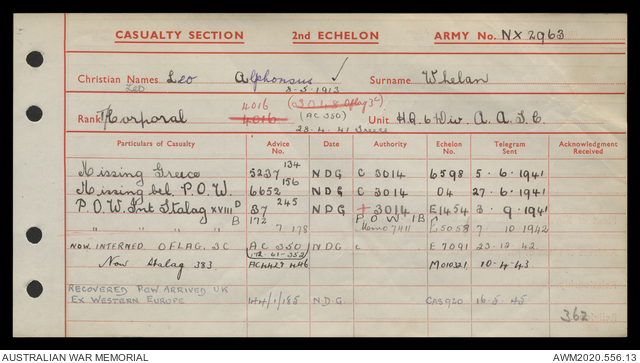 CASUALTY SECTION 2nd ECHELON ARMY No. NX 2963
Christian Names Leo Alphonsus Surname Whelan
Leo 3-5-1913
4016
Rank Corporal 4016 (AC 350) Unit H.Q. 6 Div. A. A. S. C.
28.4.41 Greece
Particulars of Casualty Advice No. Date Authority Echelon No. Telegram Sent Acknowledgment Received
Missing Greece 5237 134 NDG C 3014 6598 5-6-1941
Missing bel. P.O.W. 6652 156 NDG C 3014 04 27-6-1941
P.O.W. Int Stalag XVIII D 37 245 NDG 3014 E1454 3-9-1941
" " " " B 172 7.178 P.O.W. 1B Memo 7411 E5058 7-10-1942
NOW INTERNED OFLAG 3C AC 350 NDG C E7091 23-12-42
(172-61-352)
Now Stalag 383 AC4427 446 M010321 10-4-43
RECOVERED POW ARRIVED UK
EX WESTERN EUROPE 144/1/185 N.D.G. CAS920 16-5-45
362
AUSTRALIAN WAR MEMORIAL AWM2020.556.13